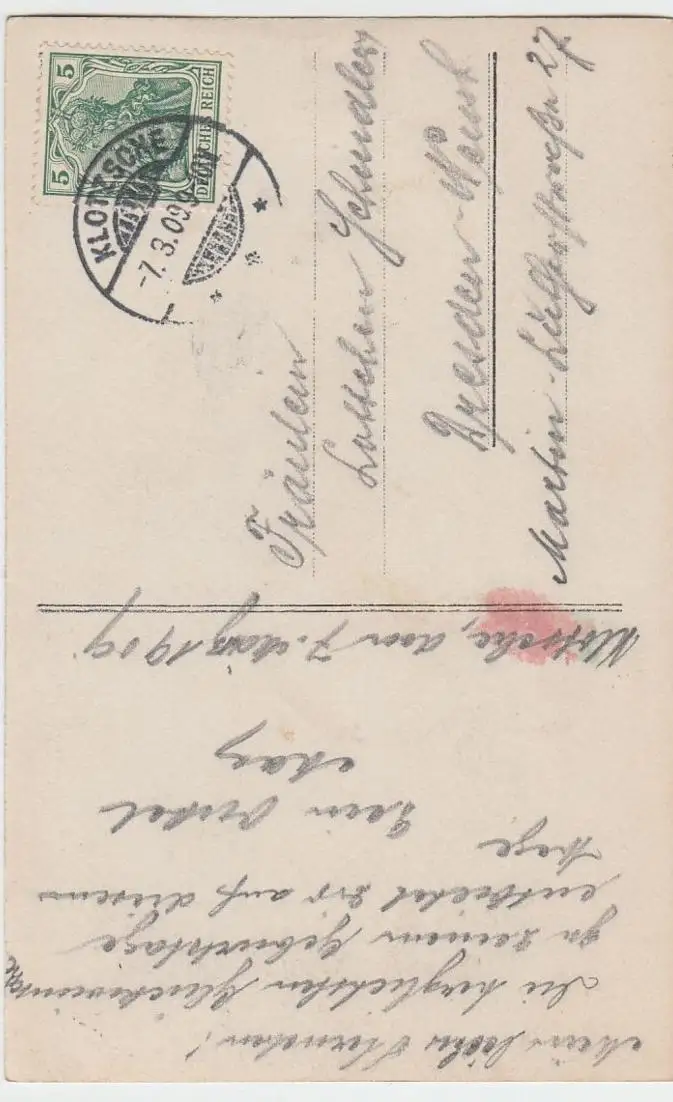 5 5
DEUTSCHES REICH
KLOTZSCHE
-7.3.09.9
Fräulein
Lottchen Schindler
Dresden-Neust
Martin-Lutherstraße 27
Klotzsche, den 7. März 1909
Mein liebes
Die herzlichsten Glückwünsche
zu Deinem Geburtstage
entbietet Dir auf diesem
Wege
Dein Onkel
Max